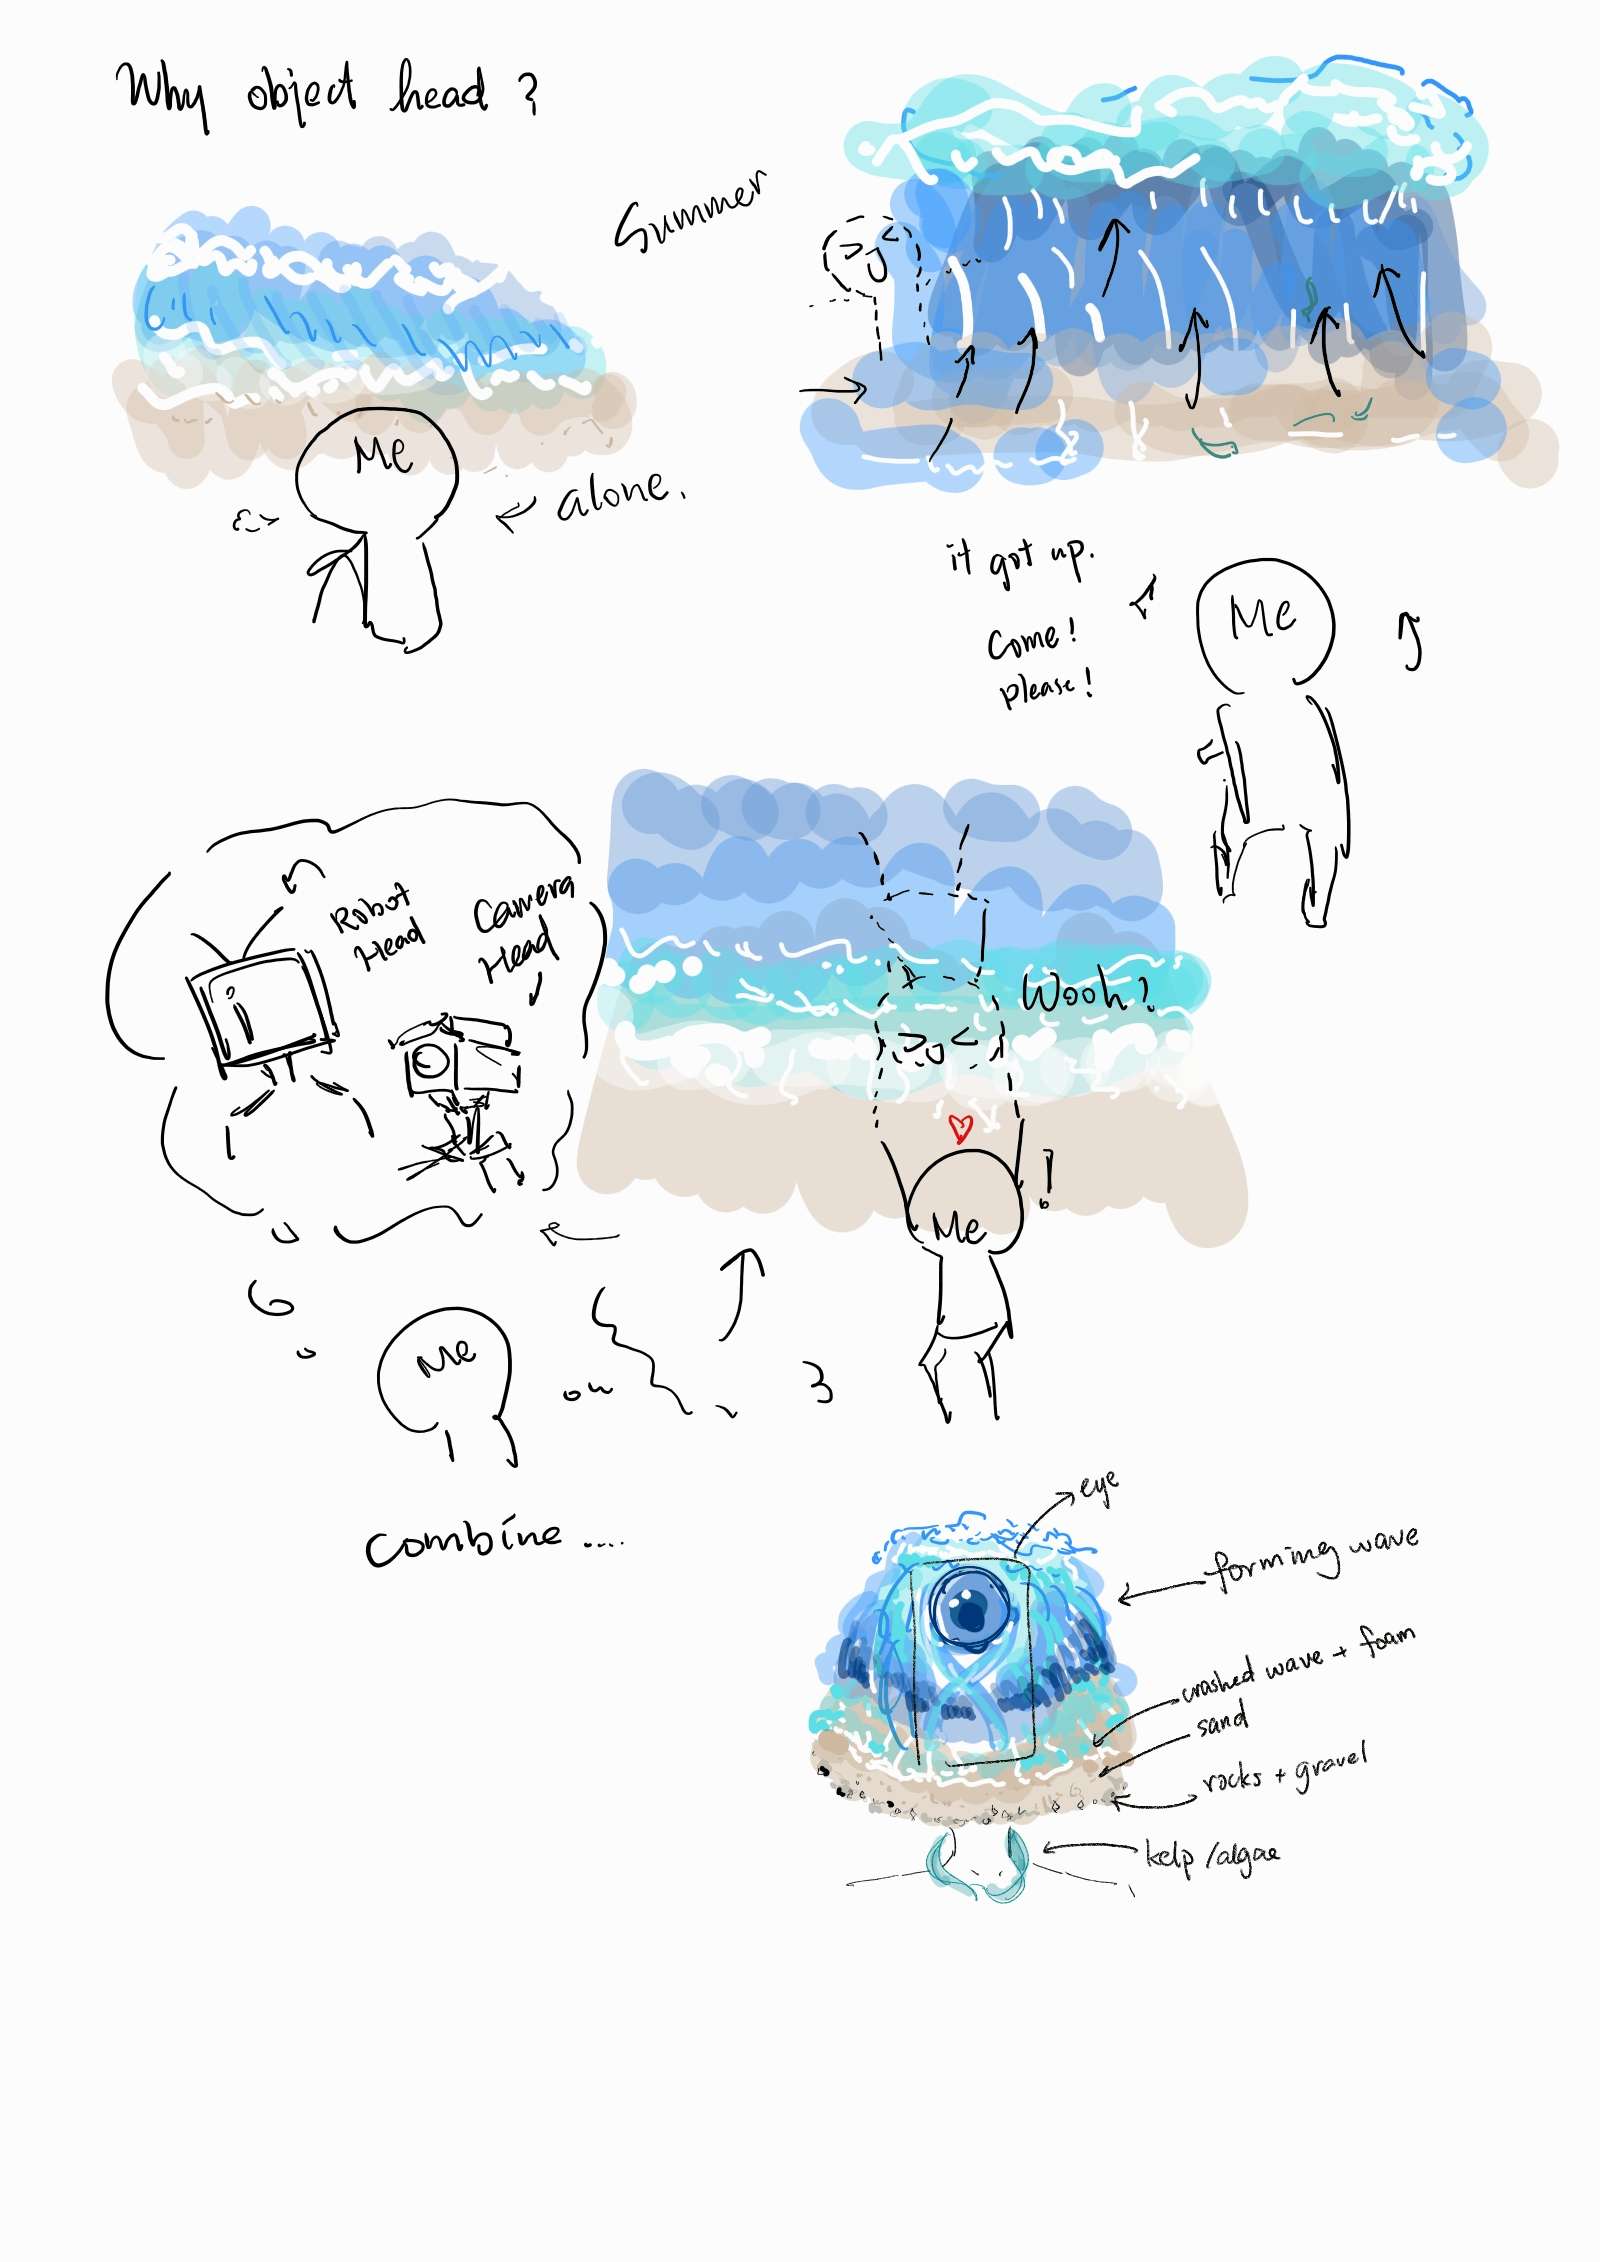 Why object head ?
Summer
Me
alone.
it got up.
Come!
please!
Me
Robot
Head
Camera
Head
Wooh?
Me
!
Me
combine .....
eye
forming wave
crashed wave + foam
sand
rocks + gravel
kelp /algae